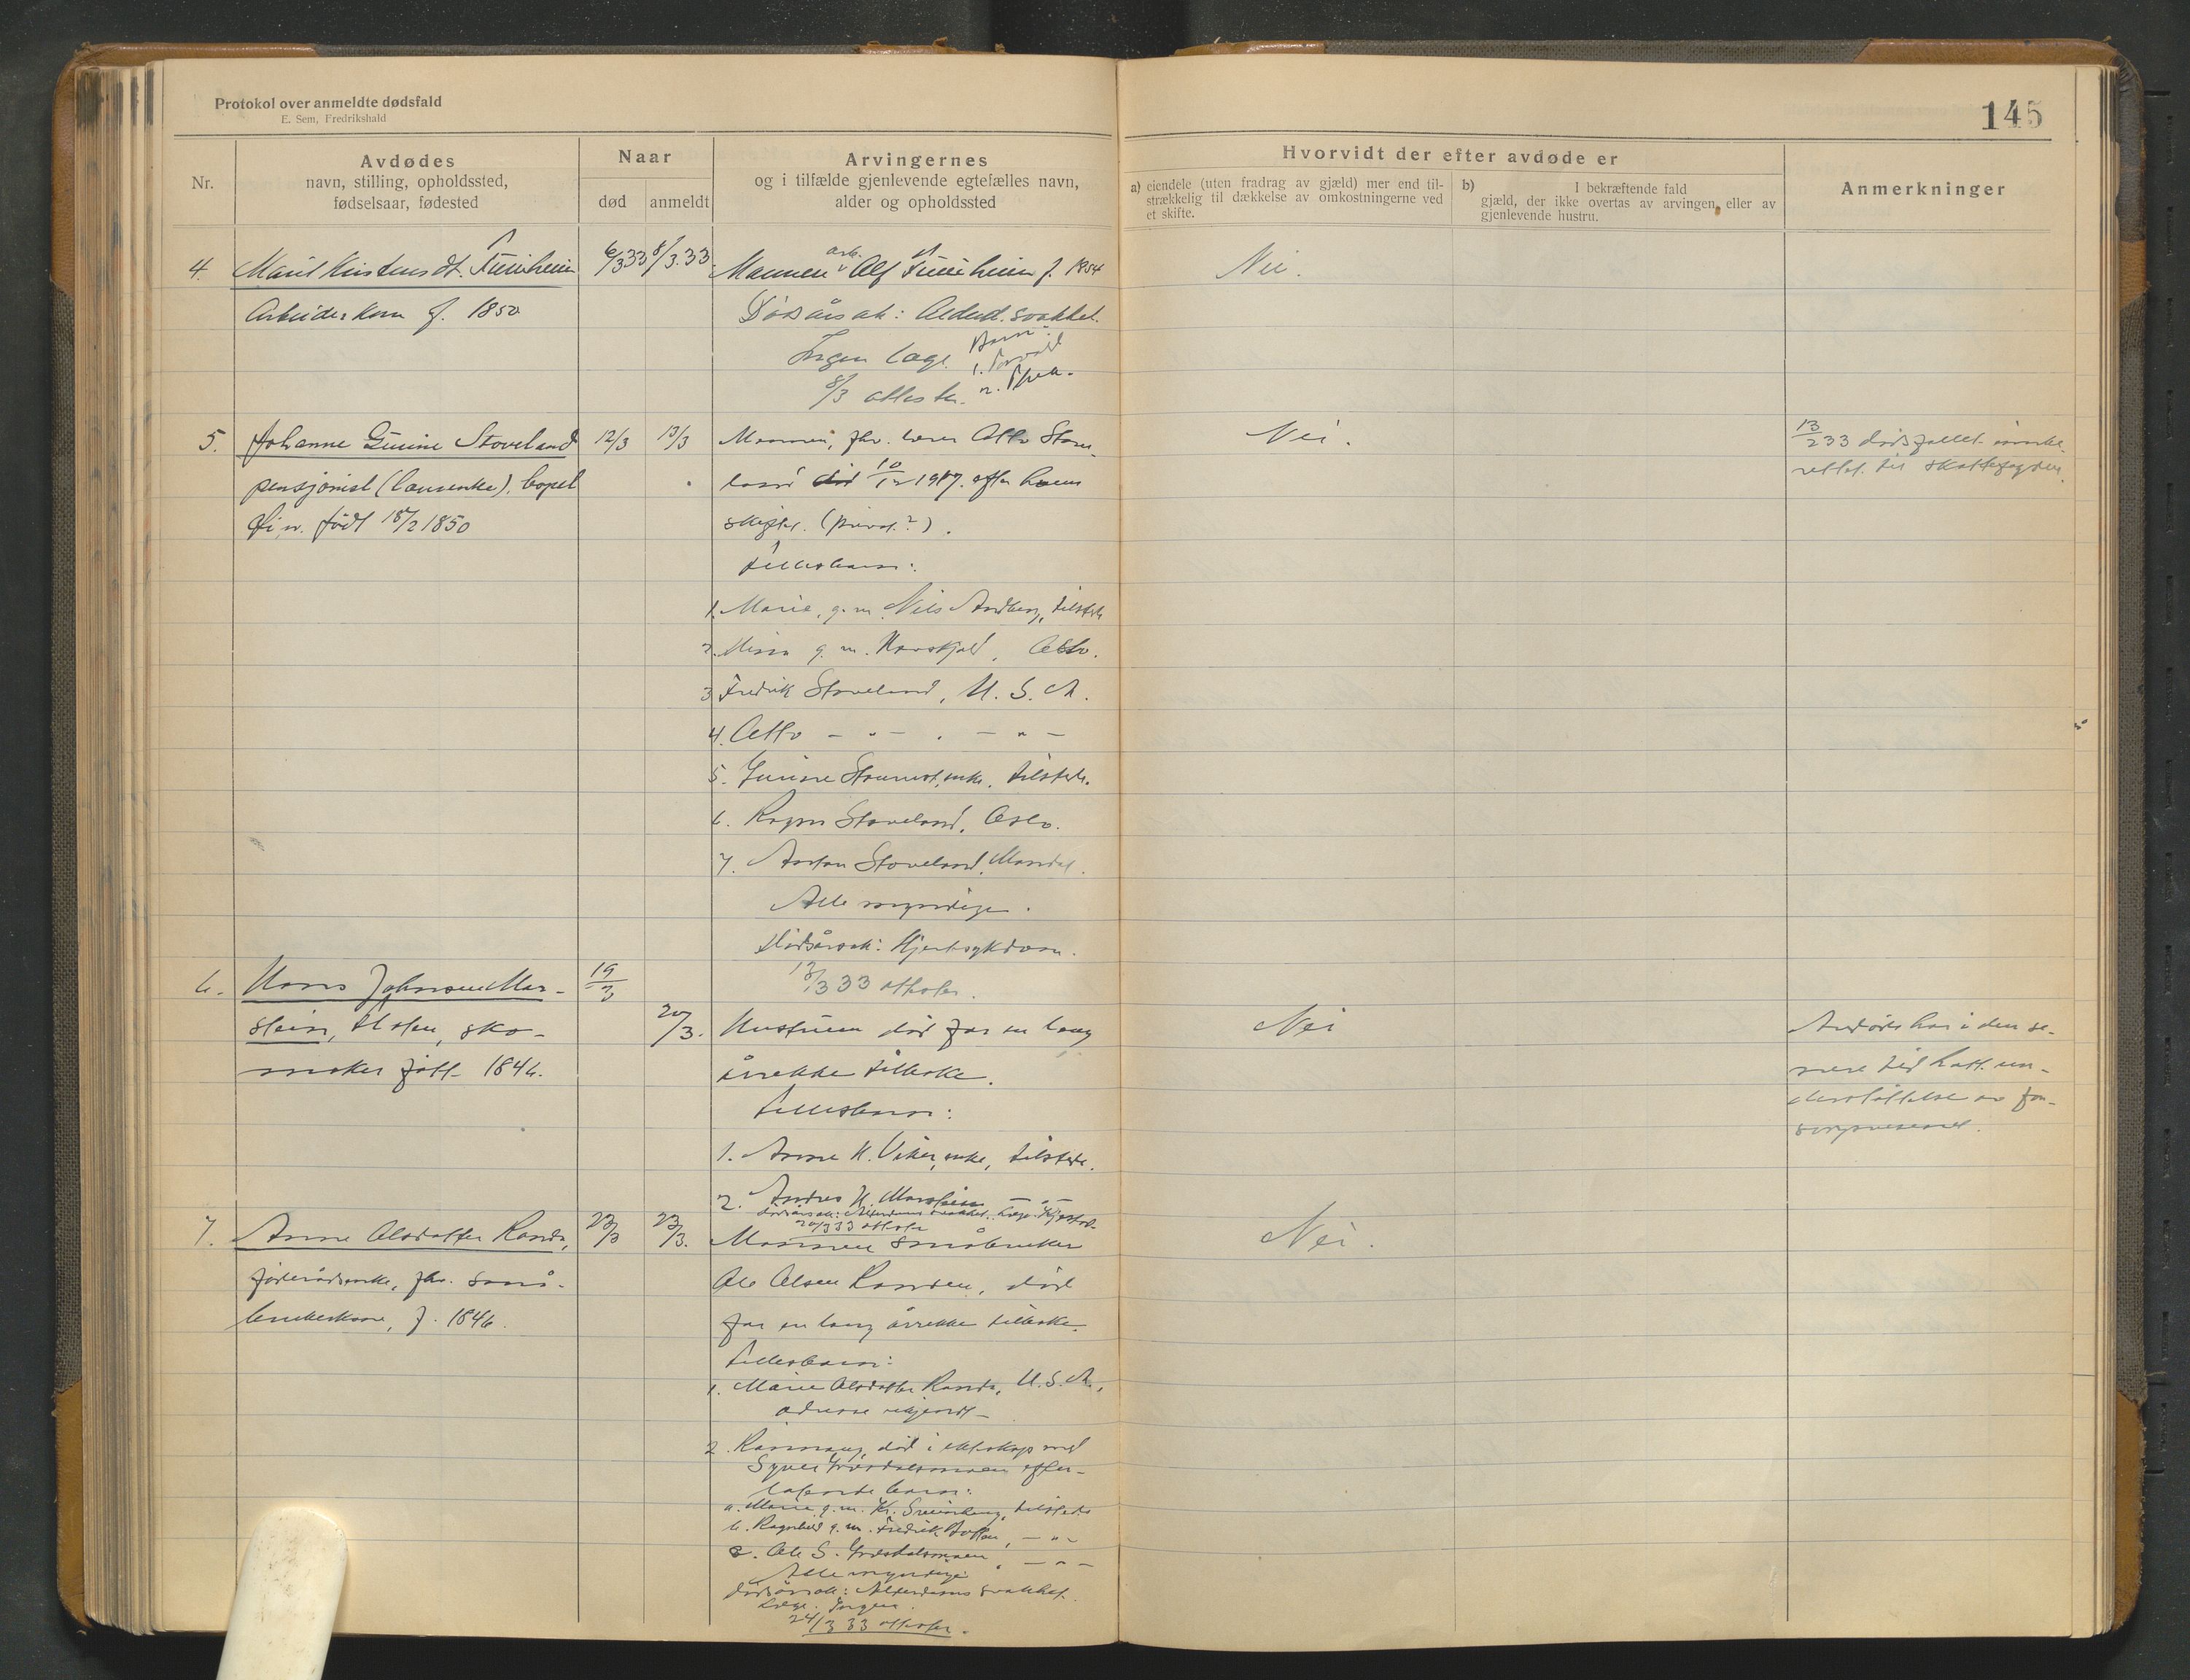 Protokol over anmeldte dødsfald
E. Sem, Fredrikshald
145
Nr.
Avdødes
navn, stilling, opholdssted,
fødselsaar, fødested
Naar
død
anmeldt
Arvingernes
og i tilfælde gjenlevende egtefælles navn,
alder og opholdssted
Hvorvidt der efter avdøde er
a) eiendele (uten fradrag av gjæld) mer end til-
strækkelig til dækkelse av omkostningerne ved
et skifte.
b) I bekræftende fald
gjæld, der ikke overtas av arvingen eller av
gjenlevende hustru.
Anmerkninger
4. Marit Kristensdt.
Arbeiderkone f. 1850
6/3 33
8/3.33.
Mannen arb. Alf f. 1854
Dødsårsak: Alderd. svakhet.
Ingen læge.
Barn:
1.
2. Thea.
8/3 attester.
Nei.
5. Johanne Gurine Stoveland
pensjonist (lærerenke), bopel
født 18/2 1850
12/3
13/3
Mannen, fhv. lærer Otto Stove-
land død 10/12 1917. efter hvem
skiftet. (privat?).
Fellesbarn:
1. Marie, g. m. Nils tilstede
2. g. m. Oslo.
3 Fredrik Stoveland, U. S. A.
4. Otto — " — . — " —
5. Gurine enke, tilstede.
6. Stoveland, Oslo.
7. Anton Stoveland, Mandal.
Alle myndige.
Dødsårsak: Hjertesykdom.
13/3 33 attester.
Nei.
13/2 33 dødsfallet innbe-
rettet til skattefogden.
6. Hans Johnsen Mar-
stein, sko-
maker født 1846.
19/3
20/3.
Hustruen død for en lang
årrekke tilbake.
Fellesbarn:
1. Anne H. enke, tilstede.
2. Andres H. Marstein — " —
Dødsårsak: Alderdoms svakhet. Læge:
20/3 33 attester
Nei
Avdøde har i den se-
nere tid hatt un-
derstøttelse av for-
sorgsvesenet.
7. Anne Olsdatter Randa,
føderådsenke, fhv. små-
brukerkone, f. 1846.
23/3
23/3.
Mannen småbruker
Ole Olsen Randen, død
for en lang årrekke tilbake.
Fellesbarn:
1. Marie Olsdatter Randa, U. S. A.,
adresse ukjendt —
2. død i ekteskap med
Syver efter-
latende barn:
a. Marie g. m. Kr. tilstede
b. Ragnhild g. m. Fredrik — " —
c. Ole S. — " —
Alle myndige
Dødsårsak: Alderdoms svakhet.
Læge: Ingen.
24/3 33 attester.
Nei.